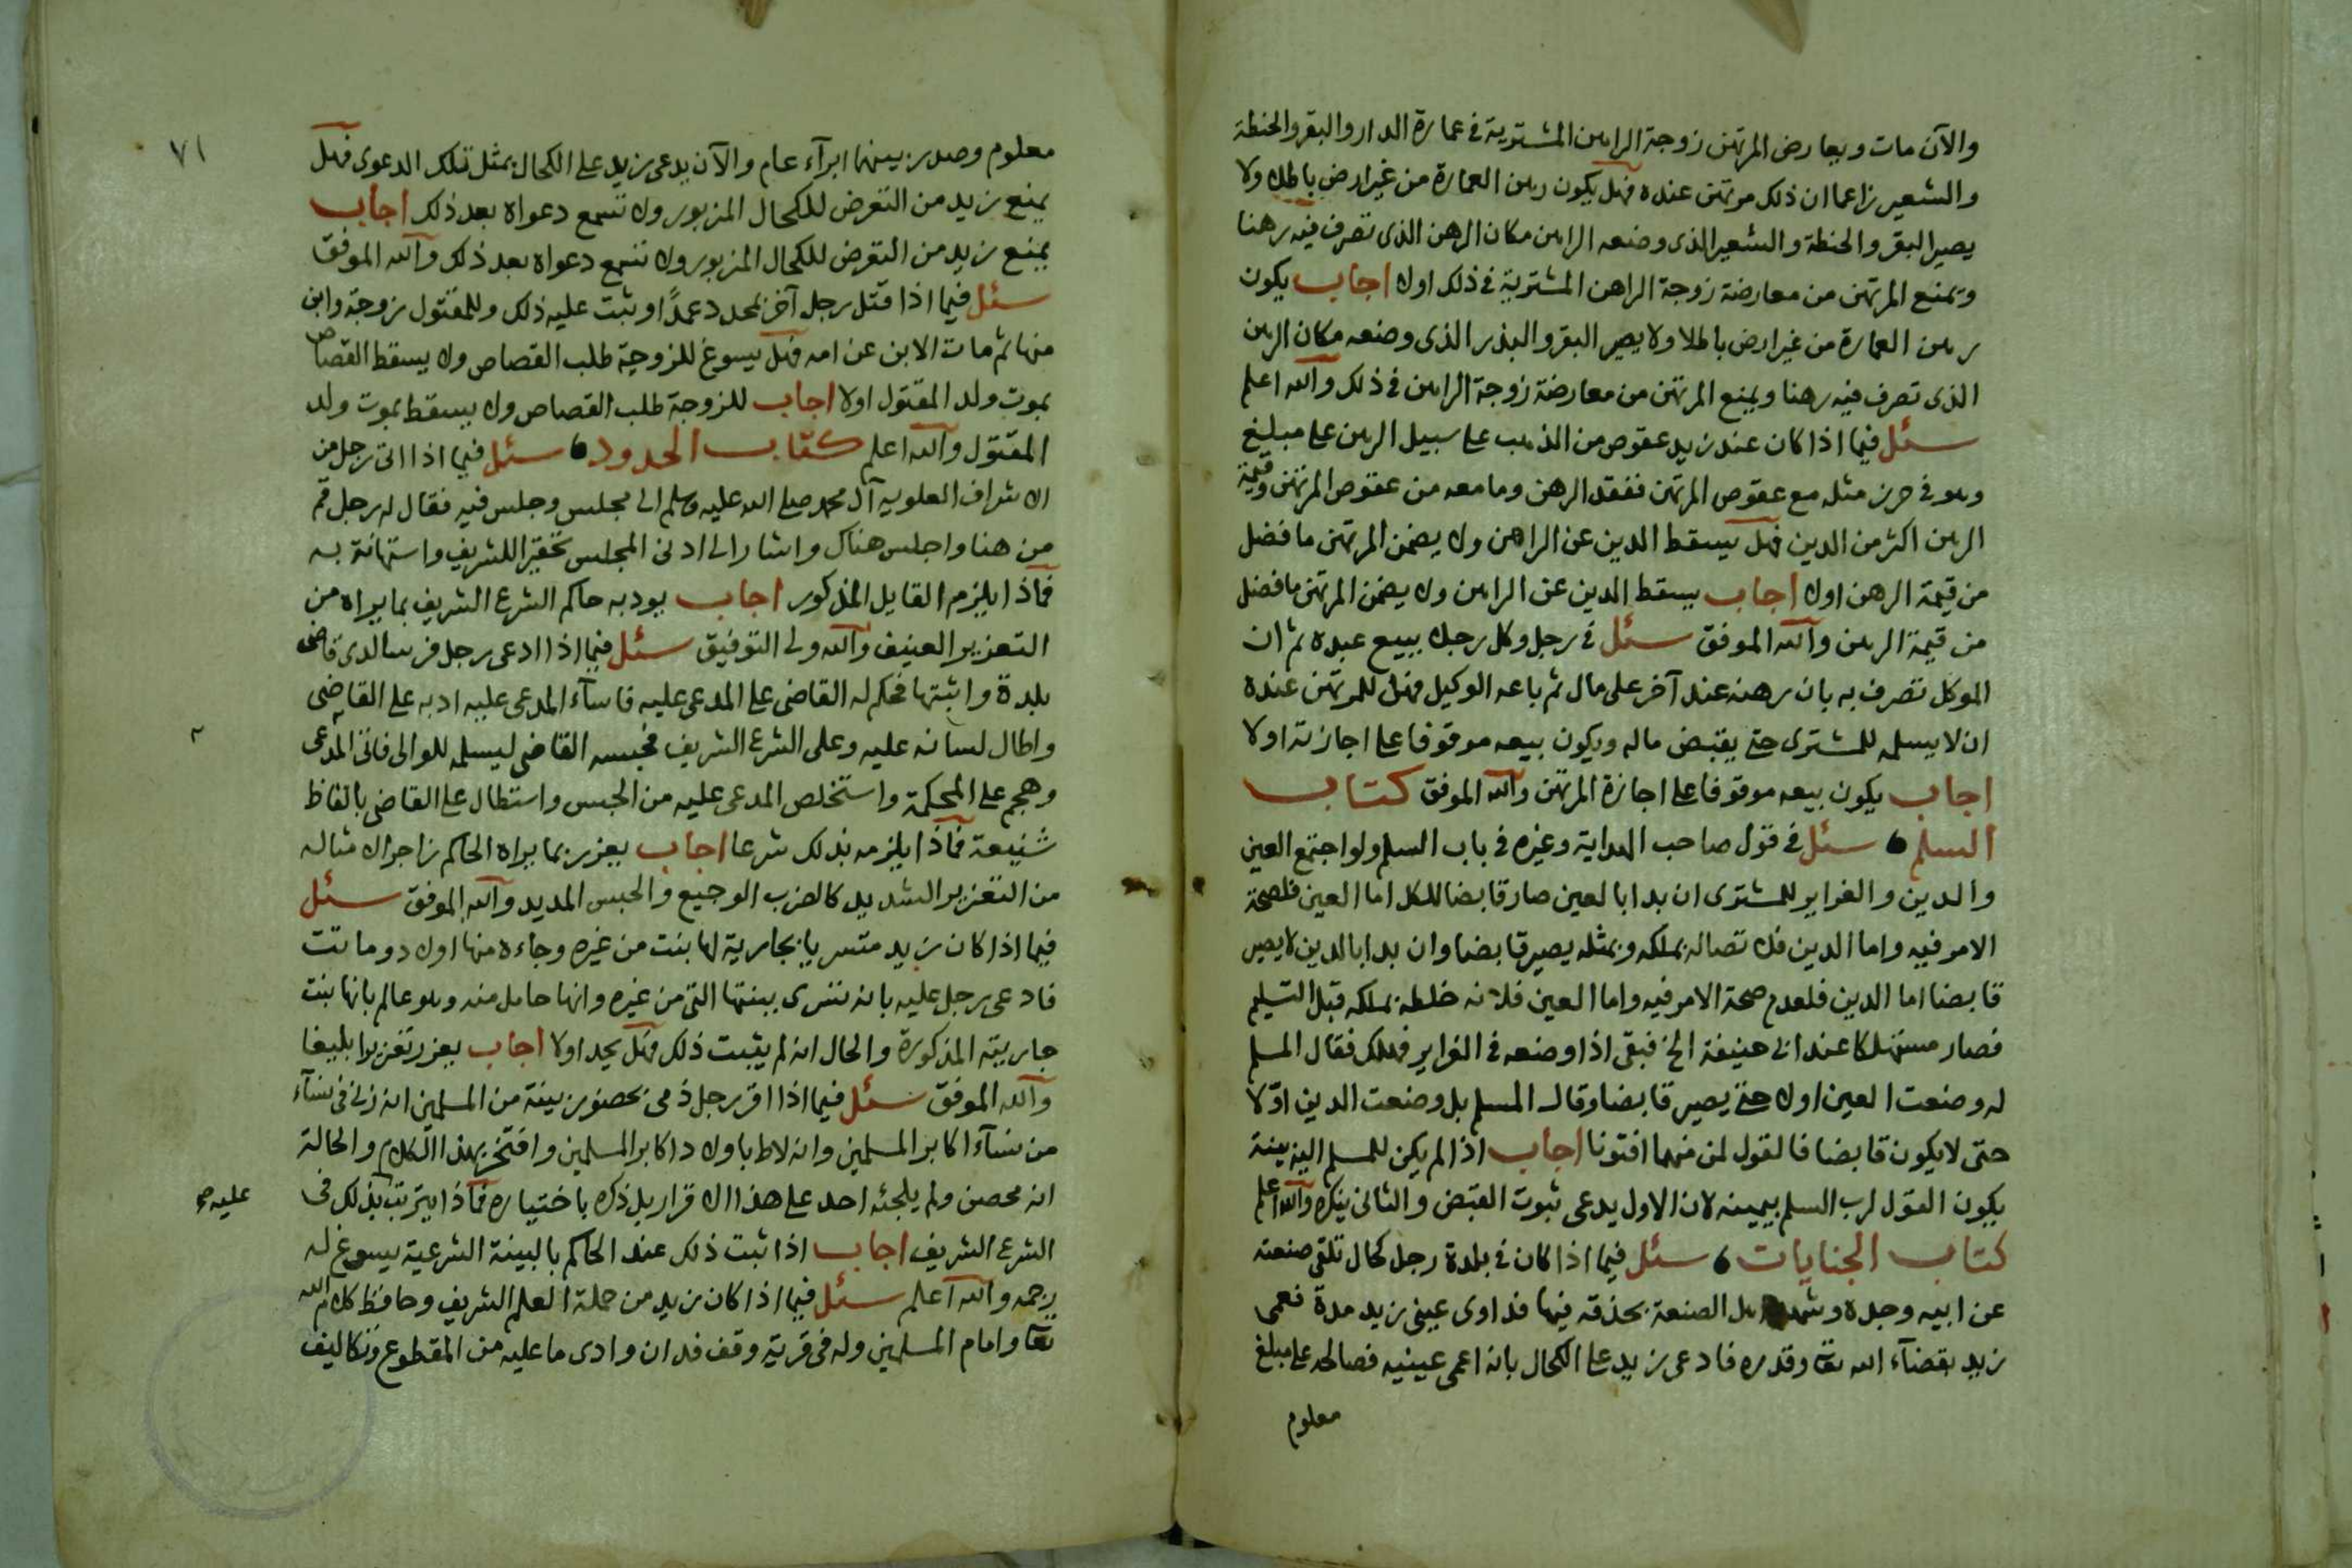 والآن مات ويعارض المرتهن زوجة الراهن المشترية في عمارة الدار والبقر والحنطة
والشعير زاعما ان ذلك مرتهن عنده فهل يكون رهن العمارة من غير ارض باطلا ولا
يصير البقر والحنطة والشعير الذى وضعه الراهن مكان الرهن الذى تصرف فيه رهنا
ويمنع المرتهن من معارضة زوجة الراهن المشترية في ذلك اولا اجاب يكون
رهن العمارة من غير ارض باطلا ولا يصير البقر والبذر الذى وضعه مكان الرهن
الذى تصرف فيه رهنا ويمنع المرتهن من معارضة زوجة الراهن في ذلك والله اعلم
سئل فيما اذا كان عند زيد عقوص من الذهب على سبيل الرهن على مبلغ
وهو في حرز مثله مع عقوص المرتهن ففقد الرهن وما معه من عقوص المرتهن وقيمة
الرهن اكثر من الدين فهل يسقط الدين عن الراهن ولا يضمن المرتهن ما فضل
من قيمة الرهن اولا اجاب يسقط الدين عن الراهن ولا يضمن المرتهن ما فضل
من قيمة الرهن والله الموفق سئل في رجل وكل رجلا ببيع عبده ثم ان
الموكل تصرف به بان رهنه عند آخر على مال ثم باعه الوكيل فهل للمرتهن عنده
ان لا يسلمه للمشترى حتى يقبض ماله ويكون بيعه موقوفا على اجازته اولا
اجاب يكون بيعه موقوفا على اجازة المرتهن والله الموفق كتاب
السلم سئل في قول صاحب الهداية وغيره في باب السلم ولو اجتمع العين
والدين والغراير للمشترى ان بدا بالعين صار قابضا للكل اما العين فلصحة
الامر فيه واما الدين فلاتصاله بملكه وبمثله يصير قابضا وان بدا بالدين لا يصير
قابضا اما الدين فلعدم صحة الامر فيه واما العين فلانه خلطه بملكه قبل التسليم
فصار مستهلكا عند ابى حنيفة الخ فبقى اذا وضعه في الغراير فهلك فقال المسلم
له وضعت العين اولا حتى يصير قابضا وقال المسلم بل وضعت الدين اوّلا
حتى لا يكون قابضا فالقول لمن منهما افتونا اجاب اذا لم يكن للمسلم اليه بينة
يكون القول لرب السلم بيمينه لان الاول يدعى ثبوت القبض والثانى ينكره والله اعلم
كتاب الجنايات سئل فيما اذا كان في بلدة رجل كحال تلقى صنعته
عن ابيه وجده وشهد اهل الصنعة بحذقه فيها فداوى عينى زيد مدة فعمى
زيد بقضآء الله تعا وقدره فادعى زيد على الكحال بانه اعمى عينيه فصالحه على مبلغ
معلوم
٧١
معلوم وصدر بينهما ابرآء عام والآن يدعى زيد على الكحال بمثل تلك الدعوى فهل
يمنع زيد من التعرض للكحال المزبور ولا تسمع دعواه بعد ذلك اجاب
يمنع زيد من التعرض للكحال المزبور ولا تسمع دعواه بعد ذلك والله الموفق
سئل فيما اذا قتل رجل آخر بمحدد عمدًا وثبت عليه ذلك وللمقتول زوجة وابن
منها ثم مات الابن عن امه فهل يسوغ للزوجة طلب القصاص ولا يسقط القصاص
بموت ولد المقتول اولا اجاب للزوجة طلب القصاص ولا يسقط بموت ولد
المقتول والله اعلم كتاب الحدود سئل فيما اذا اتى رجل من
الاشراف العلوية آل محمد صلى الله عليه وسلم الى مجلس وجلس فيه فقال له رجل قم
من هنا واجلس هناك واشار الى ادنى المجلس تحقيرا للشريف واستهانة به
فماذا يلزم القايل المذكور اجاب يودبه حاكم الشرع الشريف بما يراه من
التعزير العنيف والله ولى التوفيق سئل فيما اذا ادعى رجل فرسا لدى قاضى
بلدة واثبتها فحكم له القاضى على المدعى عليه فاسآء المدعى عليه ادبه على القاضى
واطال لسانه عليه وعلى الشرع الشريف فحبسه القاضى ليسلمه للوالى فاتى المدعى
وهجم على المحكمة واستخلص المدعى عليه من الحبس واستطال على القاضى بالفاظ
شنيعة فماذا يلزمه بذلك شرعا اجاب يعزر بما يراه الحاكم زاجرا لامثاله
من التعزير الشديد كالضرب الوجيع والحبس المديد والله الموفق سئل
فيما اذا كان زيد متسريا بجارية لها بنت من غيره وجاءه منها اولاد وماتت
فادعى رجل عليه بانه تسرى ببنتها التى من غيره وانها حامل منه وهو عالم بانها بنت
جاريته المذكورة والحال انه لم يثبت ذلك فهل يحد اولا اجاب يعزر تعزيرا بليغا
والله الموفق سئل فيما اذا اقر رجل ذمى بحضور بينة من المسلمين انه زنى في نسآء
من نسآء اكابر المسلمين وانه لاط باولاد اكابر المسلمين وافتخر بهذا الكلام والحالة
انه محصن ولم يلجئه احد على هذا الاقرار بل ذكره باختياره فماذا يترتب بذلك في
عليه صح
الشرع الشريف اجاب اذا ثبت ذلك عند الحاكم بالبينة الشرعية يسوغ له
رجمه والله اعلم سئل فيما اذا كان زيد من حملة العلم الشريف وحافظ كلام الله
تعا وامام المسلمين وله في قرية وقف فدان وادى ما عليه من المقطوع وتكاليف